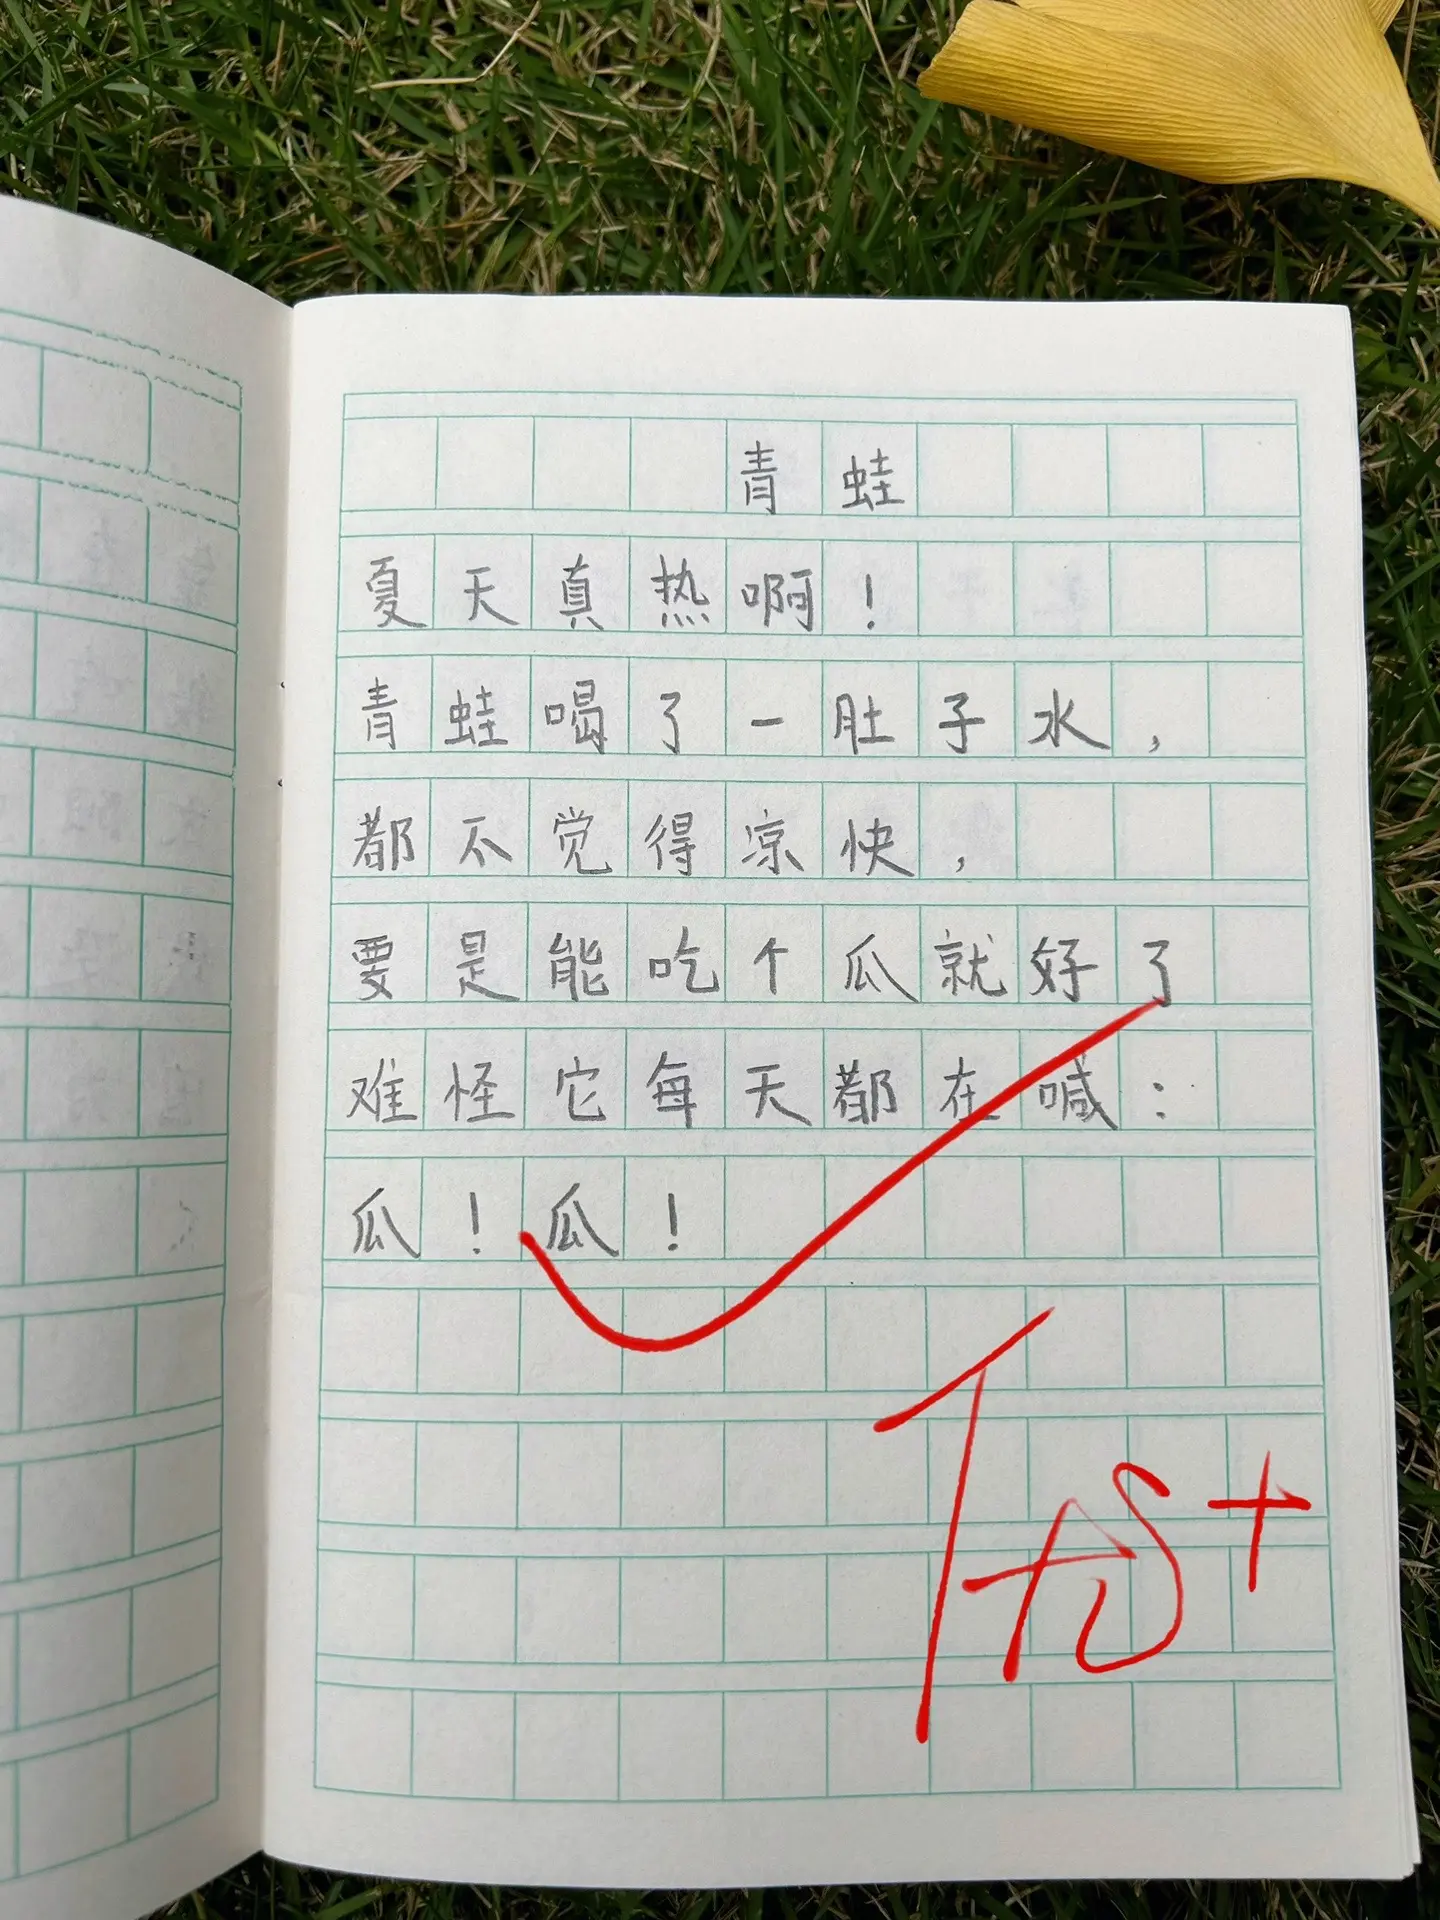 青蛙
夏天真热啊！
青蛙喝了一肚子水，
都不觉得凉快，
要是能吃个瓜就好了
难怪它每天都在喊：
瓜！瓜！